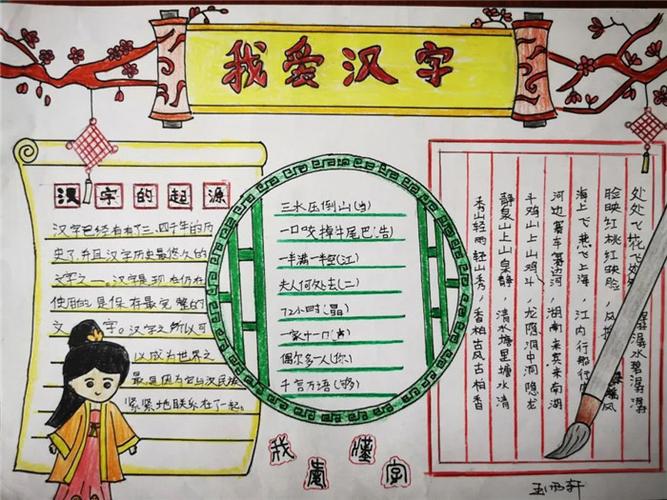 我爱汉字
汉字的起源
汉字已经有有了三、四千年的历
史了,并且汉字历史最悠久的
文字之一。汉字是现在仍在
使用的是保存最完整的
文字。汉字之所以可
以成为世界之
最是因为它与汉民族
紧紧地联系在了一起。
三水压倒山()
一口咬掉牛尾巴()
一半满一半空(江)
夫人何处去(二)
72小时(晶)
一家十一口()
偶尔多人(你)
千言万语(够)
处处飞花飞处 潺水碧潺潺
脸映红桃红映脸,风 风
海上飞燕飞上海,江内行船行内
河边赛车赛边河,湖南来宾来南湖
斗鸡山上山鸡斗,龙隐洞中洞隐龙
静泉山上山泉静,清水塘里塘水清
秀山轻雨轻山秀,香柏古风古柏香
我懂
字
王雨轩